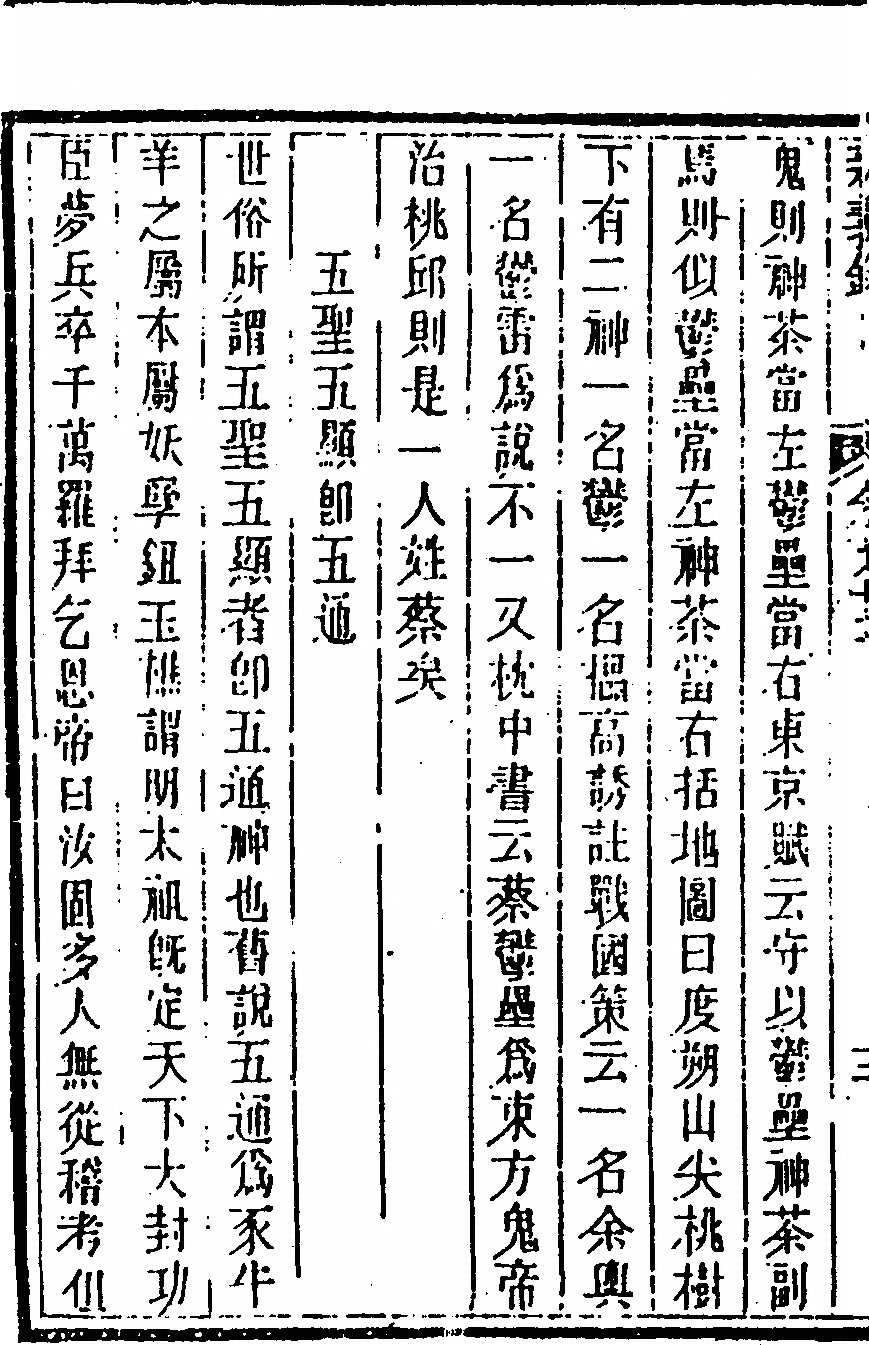 鬼則神荼當左鬱壘當右東京賦云守以鬱壘神荼副
焉則似鬱壘當左神荼當右括地圖曰度朔山尖桃樹
下有二神一名鬱一名㯓高誘註戰國策云一名余輿
一名鬱雷為說不一又枕中書云蔡鬱壘為東方鬼帝
治桃邱則是一人姓蔡矣
五聖五顯卽五通
世俗所謂五聖五顯者卽五通神也舊說五通為豕牛
羊之屬本屬妖孽鈕玉樵謂明太祖旣定天下大封功
臣夢兵卒千萬羅拜乞恩帝曰汝固多人無從稽考但